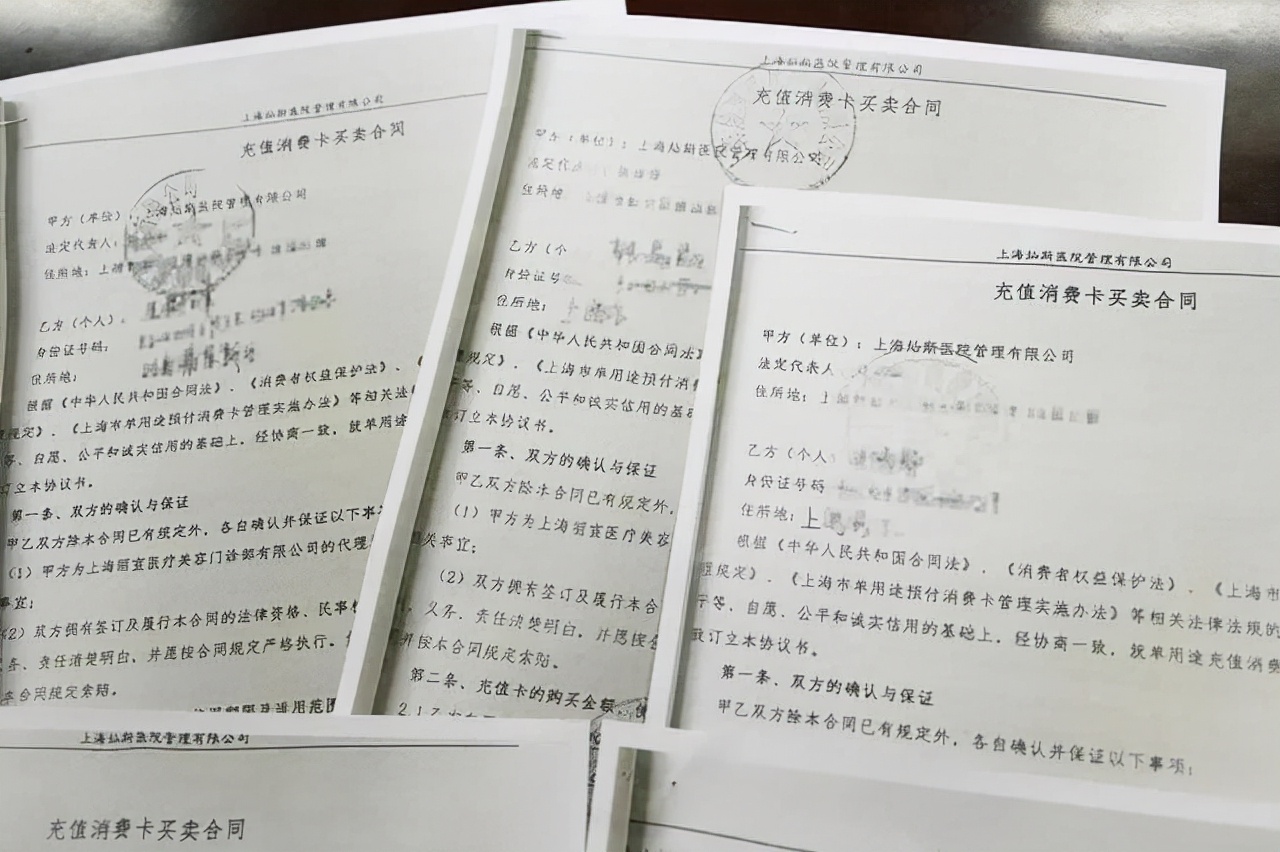 上海灿斯医院管理有限公司
充值消费卡买卖合同
甲方（单位）：上海灿斯医院管理有限公司
法定代表人：
住所地：上
乙方（个人）：
身份证号码：
住所地：
根据《中华人民共和国合同法》、《消费者权益保护法》、《
规定》、《上海市单用途预付消费卡管理实施办法》等相关法
等、自愿、公平和诚实信用的基础上，经协商一致，就单用途
订立本协议书。
第一条、双方的确认与保证
甲乙双方除本合同已有规定外，各自确认并保证以下事
（1）甲方为上海丽宣医疗美容门诊部有限公司的代理
事宜；
（2）双方拥有签订及履行本合同的法律资格、民事
务、责任清楚明白，并愿按合同规定严格执行。
本合同规定索赔。
上海灿斯医院管理有限公司
充值消费卡买卖合同
甲方（单位）：上海灿斯医院管理有限公司
法定代
住所地
乙方（个
身份证号
住所地：
根据《中华人民共和国合同法》
规定》、《上海市单用途预付消费
等、自愿、公平和诚实信用的基础
订立本协议书。
第一条、双方的确认与保证
甲乙双方除本合同已有规定外，
（1）甲方为上海丽宣医疗美容
相关事宜；
（2）双方拥有签订及履行本合
、义务、责任清楚明白，并愿按合
并按本合同规定索赔。
第二条、充值卡的购买金额
上海灿斯医院管理有限公司
充值消费卡买卖合同
甲方（单位）：上海灿斯医院管理有限公司
法定代表人
住所地：上
乙方（个人
身份证号码
住所地：上
根据《中华人民共和国合同法》、《消费者权益保护法》、《上海市
理规定》、《上海市单用途预付消费卡管理实施办法》等相关法律法规的
平等、自愿、公平和诚实信用的基础上，经协商一致，就单用途充值消费
议订立本协议书。
第一条、双方的确认与保证
甲乙双方除本合同已有规定外，各自确认并保证以下事项：
上海灿斯医院管理有限公司
充值消费卡买卖合同